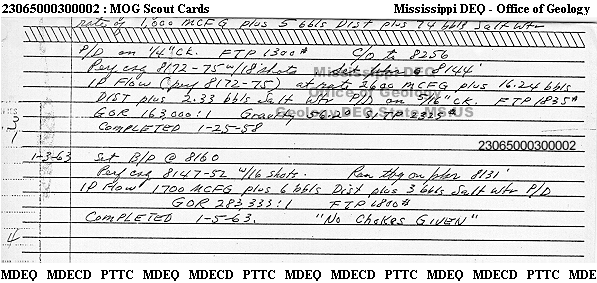 23065000300002 : MOG Scout Cards Mississippi DEQ - Office of Geology
rate of 1,600 MCFG plus 5 bbls Dist plus 74 bbls Salt Wtr
P/D on "/4" CK. FTP 1300# C/O to 8256
Perf csg 8172-75 w/18 shots pkr @ 8144'
Mississippi DEQ
IP Flow (perf 8172-75) at rate 2600 MCFG plus 16.24 bbls
Office of Geology
DIST plus 2.33 bbls Salt Wtr P/D on 5/16" CK. FTP 1835#
GOR 163,000:1 Gravity 56.2° SITP 2325#
COMPLETED 1-25-58
23065000300002
1-3-63 Set B/P @ 8160
Perf csg 8147-52 w/16 shots. Ran tbg on pkr 8131'
IP Flow 1700 MCFG plus 6 bbls Dist plus 3 bbls Salt Wtr P/D
GOR 283,333:1 FTP 1800#
COMPLETED 1-5-63. "No Chokes GIVEN"
MDEQ MDECD PTTC MDEQ MDECD PTTC MDEQ MDECD PTTC MDEQ MDECD PTTC MDEQ MDECD PTTC MDEQ MDECD PTTC MDEQ MDECD PTTC